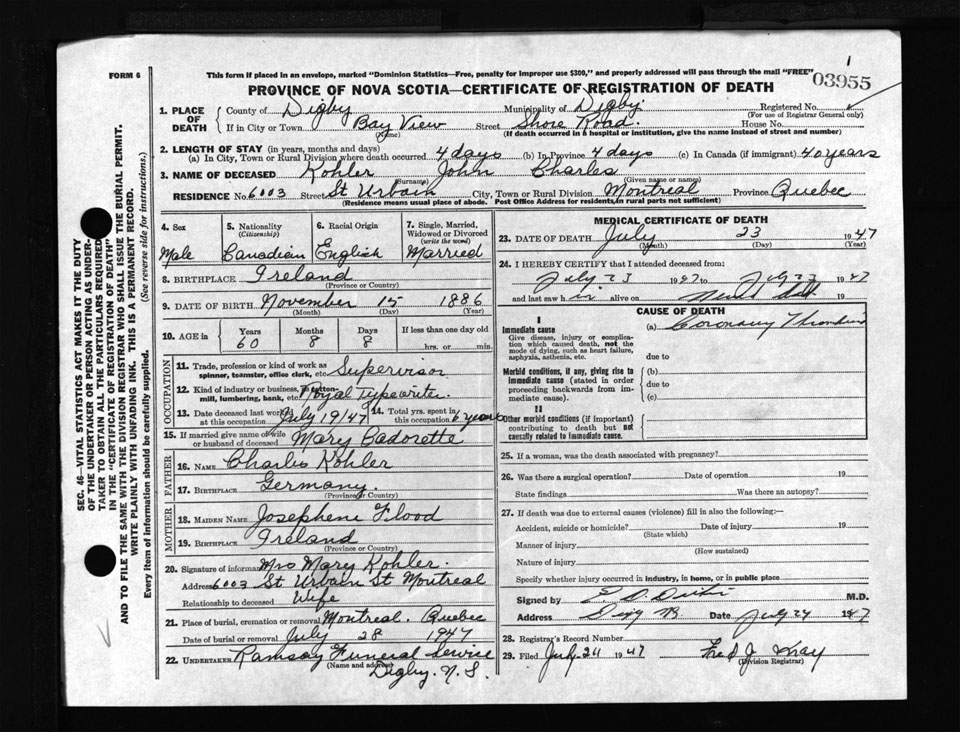 FORM 6
This form if placed in an envelope, marked "Dominion Statistics—Free, penalty for improper use $300," and properly addressed will pass through the mail "FREE"
03955
PROVINCE OF NOVA SCOTIA—CERTIFICATE OF REGISTRATION OF DEATH
1. PLACE OF DEATH
County of Digby Municipality of Digby Registered No.
(For use of Registrar General only)
If in City or Town Bay View Street Shore Road House No.
(Name) (If death occurred in a hospital or institution, give the name instead of street and number)
2. LENGTH OF STAY (in years, months and days)
(a) In City, Town or Rural Division where death occurred 4 days (b) In Province 4 days (c) In Canada (if immigrant) 40 years
3. NAME OF DECEASED Kohler John Charles
(Surname) (Given name or names)
RESIDENCE No. 6003 Street St Urbain City, Town or Rural Division Montreal Province Quebec
(Residence means usual place of abode. Post Office Address for residents in rural parts not sufficient)
4. Sex
Male
5. Nationality
(Citizenship)
Canadian
6. Racial Origin
English
7. Single, Married, Widowed or Divorced
(write the word)
Married
8. BIRTHPLACE Ireland
(Province or Country)
9. DATE OF BIRTH November 15 1886
(Month) (Day) (Year)
10. AGE in
Years 60
Months 8
Days 8
If less than one day old
hrs. or min.
OCCUPATION
11. Trade, profession or kind of work as spinner, teamster, office clerk, etc. Supervisor
12. Kind of industry or business, as cotton-mill, lumbering, bank, etc. Royal Typewriter
13. Date deceased last worked at this occupation July 19/47
14. Total yrs. spent in this occupation 6 years
15. If married give name of wife or husband of deceased Mary Badorette
FATHER
16. NAME Charles Kohler
17. BIRTHPLACE Germany.
(Province or Country)
MOTHER
18. MAIDEN NAME Josephene Flood
19. BIRTHPLACE Ireland
(Province or Country)
20. Signature of informant Mrs Mary Kohler.
Address 6003 St Urbain St Montreal
Relationship to deceased Wife
21. Place of burial, cremation or removal Montreal. Quebec
Date of burial or removal July 28 1947
22. UNDERTAKER Ramsay Funeral Service
(Name and address)
Digby. N. S.
MEDICAL CERTIFICATE OF DEATH
23. DATE OF DEATH July 23 1947
(Month) (Day) (Year)
24. I HEREBY CERTIFY that I attended deceased from:
July 23 1947 to July 23 1947
and last saw h alive on 19
CAUSE OF DEATH
I
Immediate cause
Give disease, injury or complication which caused death, not the mode of dying, such as heart failure, asphyxia, asthenia, etc.
(a) Coronary Thrombosis
due to
Morbid conditions, if any, giving rise to immediate cause (stated in order proceeding backwards from immediate cause).
(b)
due to
(c)
II
Other morbid conditions (if important) contributing to death but not causally related to immediate cause.
25. If a woman, was the death associated with pregnancy?
26. Was there a surgical operation? Date of operation 19
State findings Was there an autopsy?
27. If death was due to external causes (violence) fill in also the following:—
Accident, suicide or homicide? Date of injury 19
(State which)
Manner of injury
(How sustained)
Nature of injury
Specify whether injury occurred in industry, in home, or in public place
Signed by M.D.
Address Date July 24 1947
28. Registrar's Record Number
29. Filed July 24 1947 Fred J.
(Division Registrar)
SEC. 46—VITAL STATISTICS ACT MAKES IT THE DUTY OF THE UNDERTAKER OR PERSON ACTING AS UNDERTAKER TO OBTAIN ALL THE PARTICULARS REQUIRED IN THE "CERTIFICATE OF REGISTRATION OF DEATH" AND TO FILE THE SAME WITH THE DIVISION REGISTRAR WHO SHALL ISSUE THE BURIAL PERMIT.
WRITE PLAINLY WITH UNFADING INK. THIS IS A PERMANENT RECORD.
Every item of information should be carefully supplied. (See reverse side for instructions.)